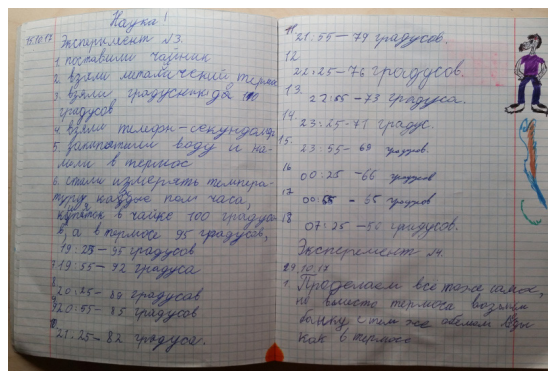 Наука!
14.10.17 Эксперемент №3.
1. поставили чайник
2. взяли металический термос
3. взяли градусник до 110
градусов
4. взяли телефон-секундомер
5. закипятили воду и на-
лили в термос
6. стали измерять темпера-
туру каждые пол часа,
кипяток в чайке 100 градусо
в, а в термосе 95 градусов,
19:25-95 градусов
7. 19:55-92 градуса
8.
20:25-89 градусов
9. 20:55-85 градусов
10.
21:25-82 градуса.
11.
21:55-79 градусов.
12.
22:25-76 градусов.
13.
22:55-73 градуса.
14.
23:25-71 градус.
15.
23:55-69 градусов.
16
00:25-66 градусов
17
00:55-65 градусов
18.
07:25-50 градусов.
Эксперемент №4.
29.10.17
1. Проделаем все тоже самое,
но вместо термоса возьмём
банку с тем же обемом воды
как в термосе